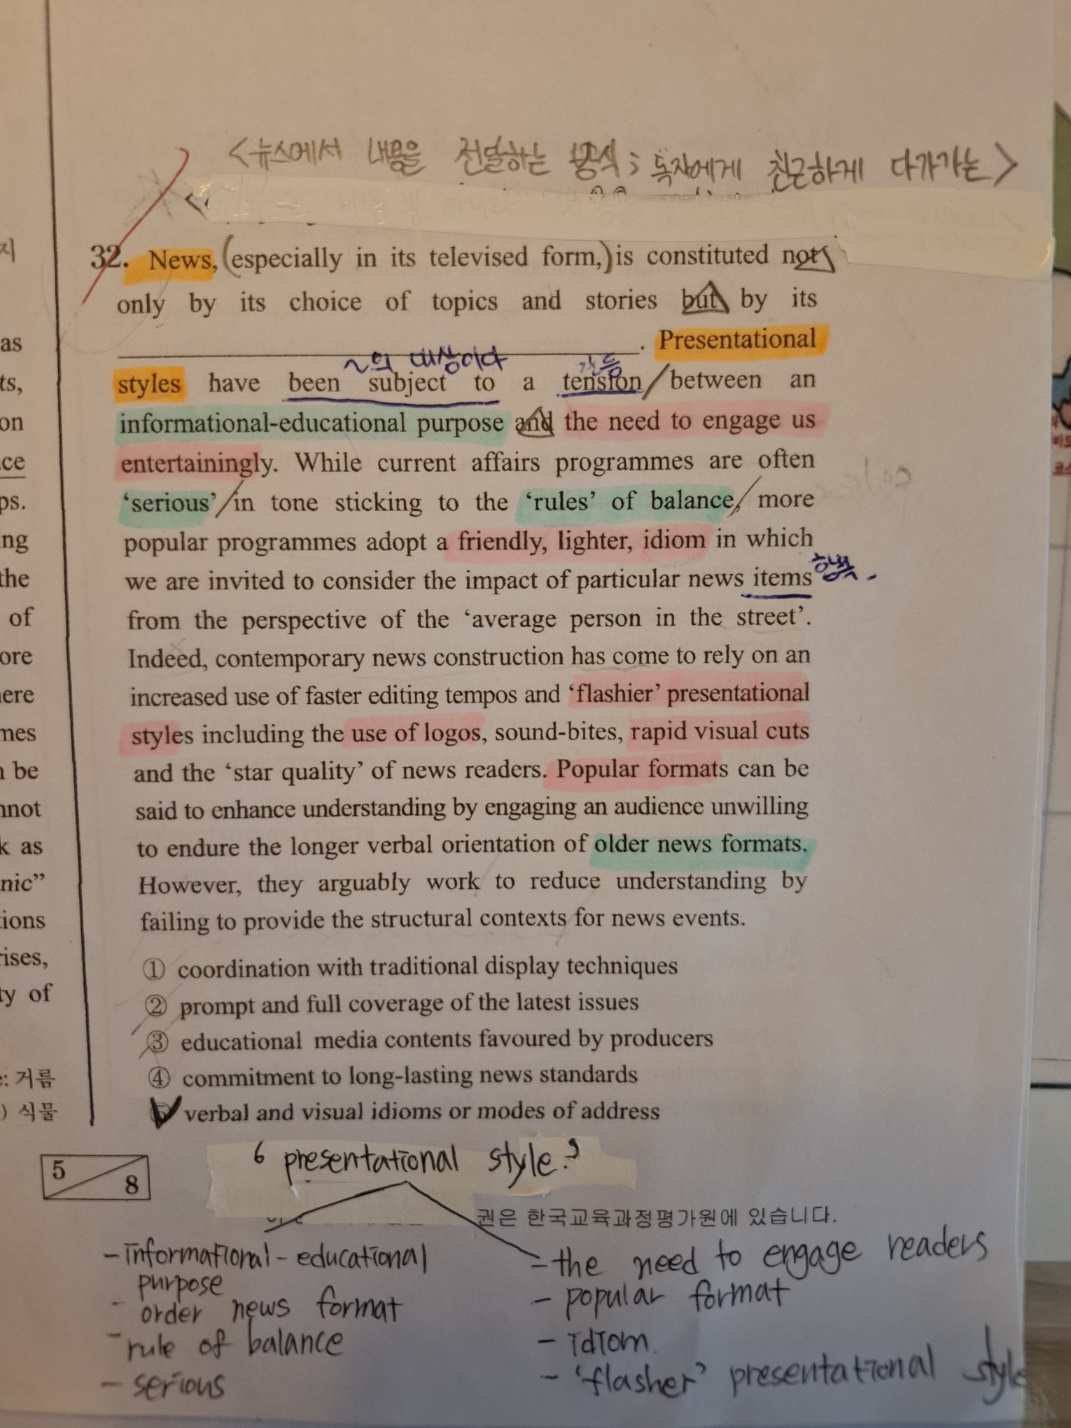 <뉴스에서 내용을 전달하는 방식; 독자에게 친근하게 다가가는>
32. News, (especially in its televised form,) is constituted not
only by its choice of topics and stories but by its
____________________. Presentational
~의 대상이다 갈등
styles have been subject to a tension / between an
informational-educational purpose and the need to engage us
entertainingly. While current affairs programmes are often
‘serious’ / in tone sticking to the ‘rules’ of balance, / more
popular programmes adopt a friendly, lighter, idiom in which
we are invited to consider the impact of particular news items 항목.
from the perspective of the ‘average person in the street’.
Indeed, contemporary news construction has come to rely on an
increased use of faster editing tempos and ‘flashier’ presentational
styles including the use of logos, sound-bites, rapid visual cuts
and the ‘star quality’ of news readers. Popular formats can be
said to enhance understanding by engaging an audience unwilling
to endure the longer verbal orientation of older news formats.
However, they arguably work to reduce understanding by
failing to provide the structural contexts for news events.
① coordination with traditional display techniques
② prompt and full coverage of the latest issues
③ educational media contents favoured by producers
④ commitment to long-lasting news standards
⑤ verbal and visual idioms or modes of address
지
as
ts,
on
ce
ps.
ng
the
of
ore
here
mes
n be
nnot
k as
nic”
tions
rises,
ty of
e: 거름
) 식물
5
8
‘presentational style’
권은 한국교육과정평가원에 있습니다.
- informational - educational
purpose
- order news format
- rule of balance
- serious
- the need to engage readers
- popular format
- idiom.
- ‘flasher’ presentational style